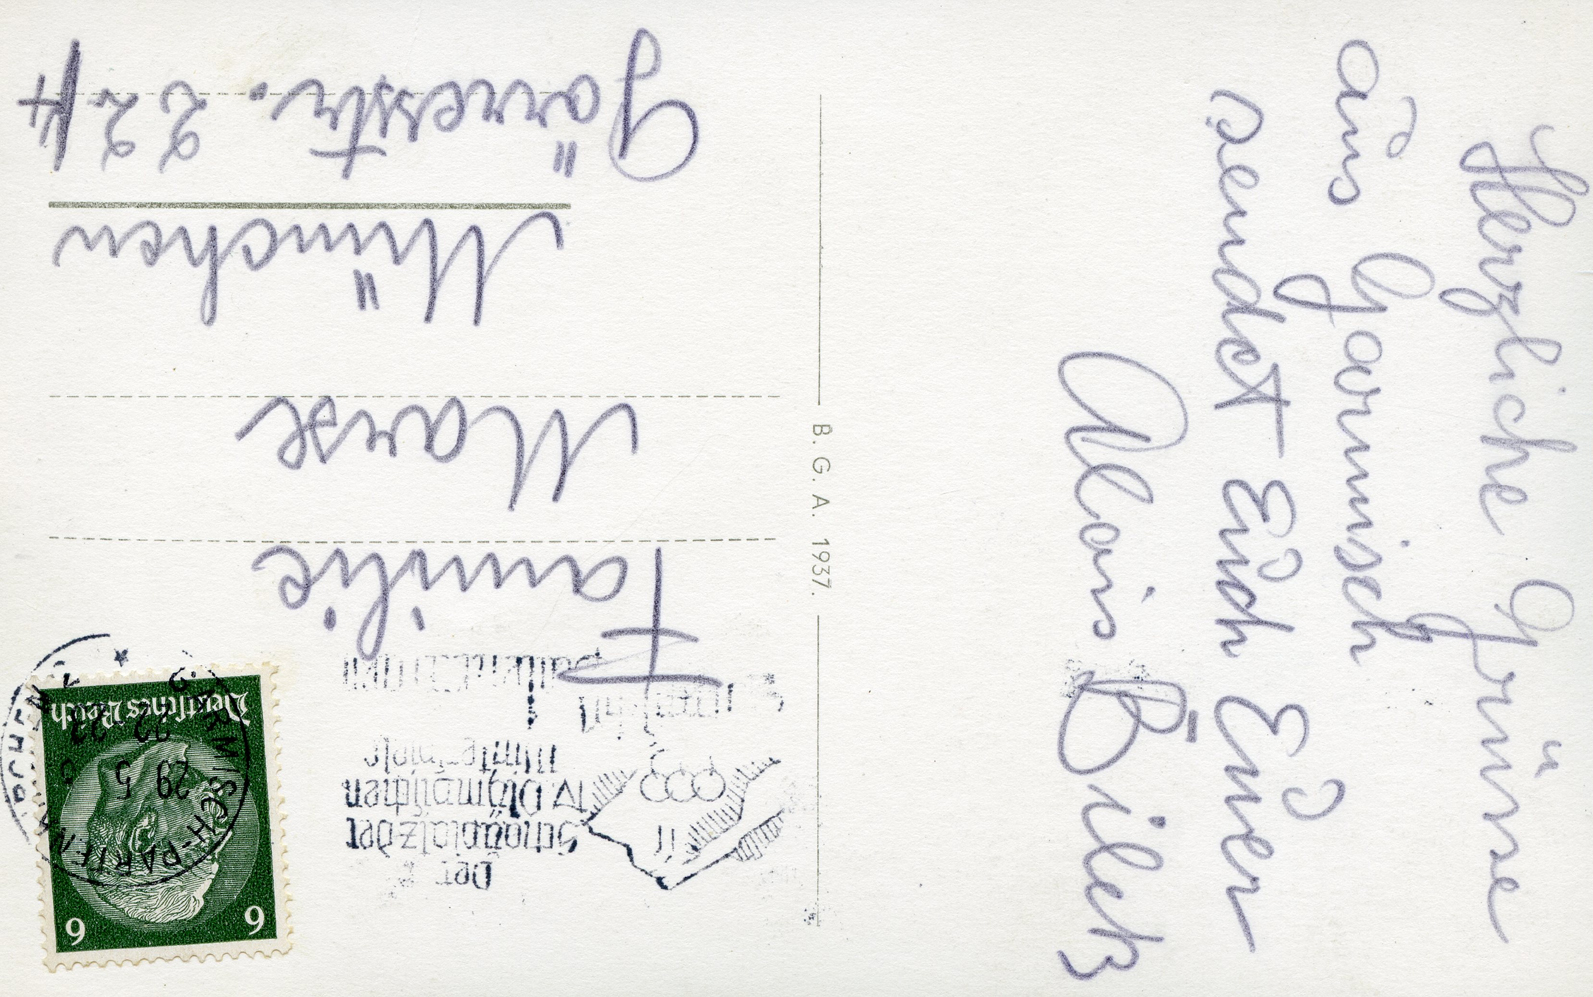 Herzliche Grüsse
aus Garmisch
sendet Euch Euer
Alois
B. G. A. 1937.
Familie
München
Görresstr. 22/4
Der
Schauplatz der
IV. Olympischen
Winterspiele
GARMISCH-PARTENKIRCHEN
29.5
Deutsches Reich
6 6